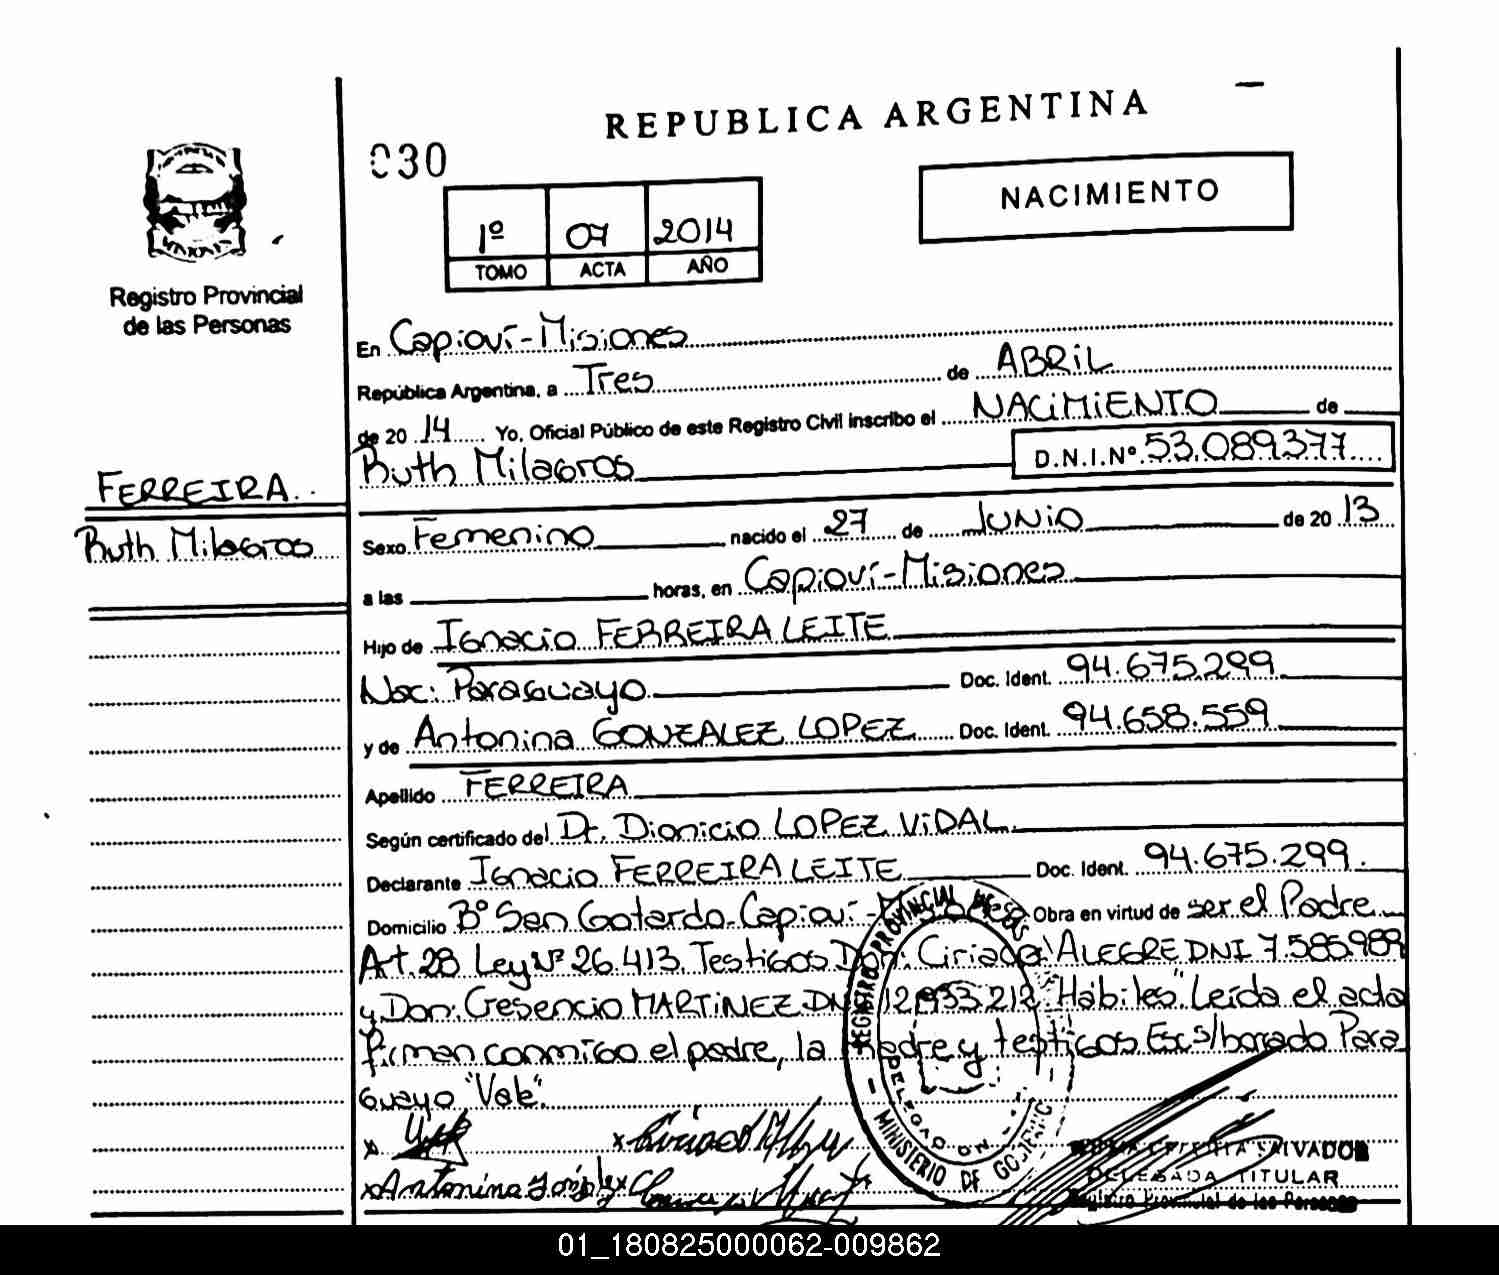 REPUBLICA ARGENTINA
030
NACIMIENTO
1º 07 2014
TOMO ACTA AÑO
Registro Provincial
de las Personas
En Capioví-Misiones
República Argentina, a Tres de ABRIL
de 20 14 Yo, Oficial Público de este Registro Civil inscribo el NACIMIENTO de
Ruth Milagros D.N.I.Nº 53.089.377
FERREIRA
Ruth Milagros
Sexo Femenino nacido el 27 de JUNIO de 20 13
a las horas, en Capioví-Misiones
Hijo de Ignacio FERREIRA LEITE
Nac: Paraguayo Doc. Ident. 94.675.299
y de Antonina GONZALEZ LOPEZ Doc. Ident. 94.658.559
Apellido FERREIRA
Según certificado del Dr. Dionicio LOPEZ VIDAL
Declarante Ignacio FERREIRA LEITE Doc. Ident. 94.675.299.
Domicilio Bº San Gotardo-Capioví-Misiones Obra en virtud de ser el Padre
Art. 28 Ley Nº 26.413. Testigos Don: ALEGRE DNI 7.585.989
y Don: Cresencio MARTINEZ DNI 12.933.212 "Hábiles". Leída el acta
firman conmigo el padre, la Madre y testigos Esc s/borrado Para
guayo "Vale".
Antonina
REGISTRO PROVINCIAL DE LAS
DELEGACION
MINISTERIO DE GOBIERNO
SALVADOR
DELEGADA TITULAR
Registro Provincial de las Personas
01_180825000062-009862